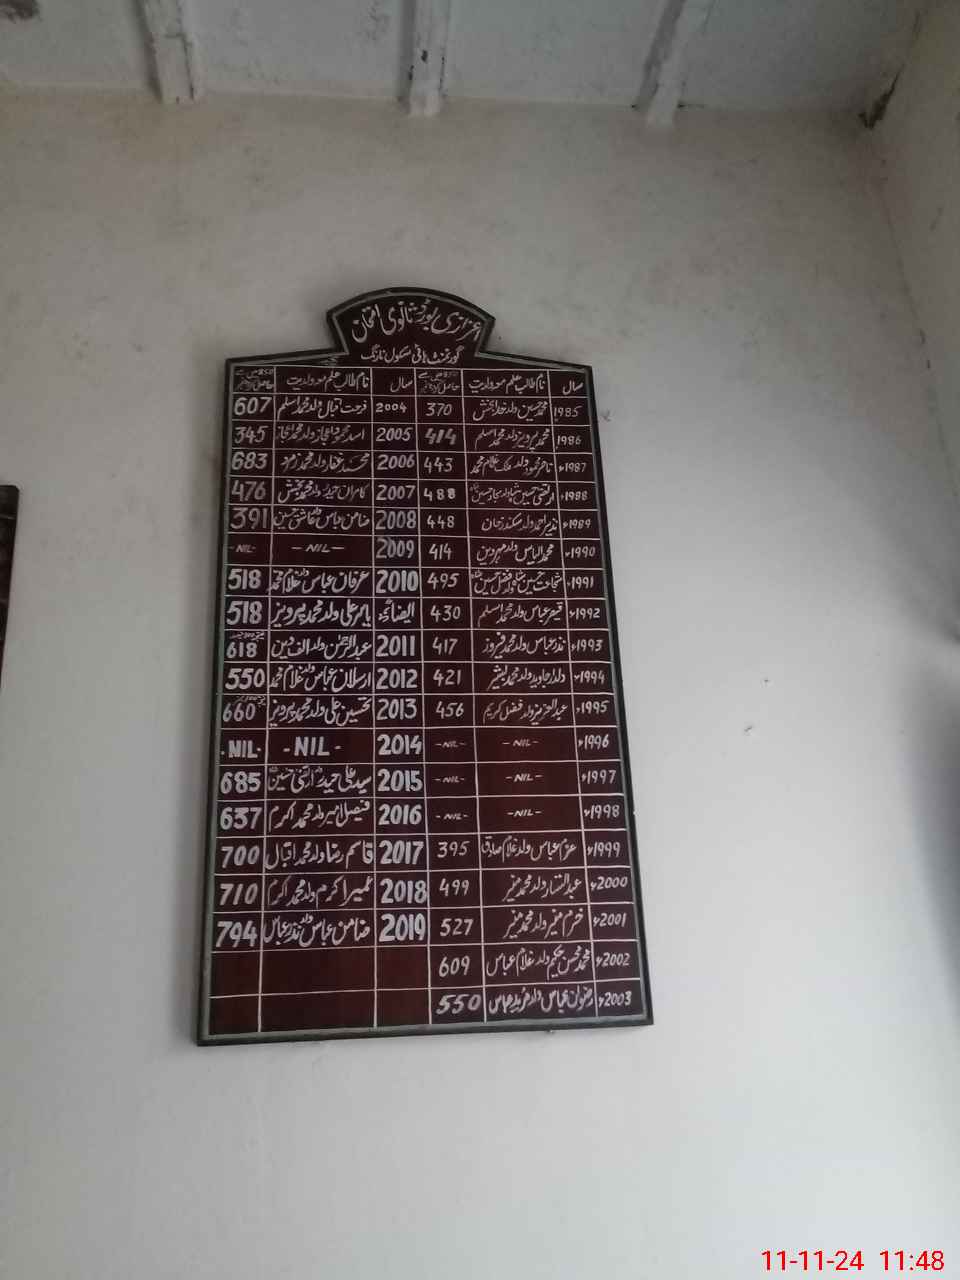 اعزازی بورڈ ثانوی امتحان
گورنمنٹ ہائی سکول نارنگ
سال نام طالب علم معہ ولدیت 850 میں سے حاصل کردہ نمبر سال نام طالب علم معہ ولدیت 850 میں سے حاصل کردہ نمبر
1985 محمد حسین ولد خدا بخش 370 2004 فرحت اقبال ولد محمد اسلم 607
1986 محمد پرویز ولد محمد اسلم 414 2005 اسد محمود اعجاز ولد محمد اعجاز 345
1987ء ناصر محمود ولد ملک غلام محمد 443 2006 محمد غفار ولد محمد زمرد 683
1988ء 488 2007 کامران حیدر ولد محمد بخش 476
1989ء نذیر احمد ولد سکندر خان 448 2008 ضامن عباس ولد عاشق حسین 391
1990ء محمد الیاس ولد مہر دین 414 2009 -NIL- -NIL-
1991ء شجاعت حسین شاہ ولد افضل حسین شاہ 495 2010 عرفان عباس ولد غلام محمد 518
1992ء قیصر عباس ولد محمد اسلم 430 ایضاً یاسر علی ولد محمد پرویز 518
1993ء نذر عباس ولد محمد فیروز 417 2011 عبدالرحمٰن ولد الف دین 618
1994ء دلدار جاوید ولد محمد بشیر 421 2012 ارسلان عباس ولد غلام محمد 550
1995ء عبدالعزیز ولد فضل کریم 456 2013 تحسین علی ولد محمد پرویز 660
1996ء -NIL- -NIL- 2014 -NIL- -NIL-
1997ء -NIL- -NIL- 2015 سید علی حیدر ولد ارتضیٰ حسین 685
1998ء -NIL- -NIL- 2016 فیصل امیر ولد محمد اکرم 637
1999ء عزم عباس ولد غلام صادق 395 2017 قاسم رضا ولد محمد اقبال 700
2000ء عبدالستار ولد محمد منیر 499 2018 عمیر اکرم ولد محمد اکرم 710
2001ء خرم منیر ولد محمد منیر 527 2019 ضامن عباس ولد نذر عباس 794
2002ء محمد محسن حکیم ولد غلام عباس 609
2003ء رضوان عباس ولد مرید عباس 550
11-11-24 11:48